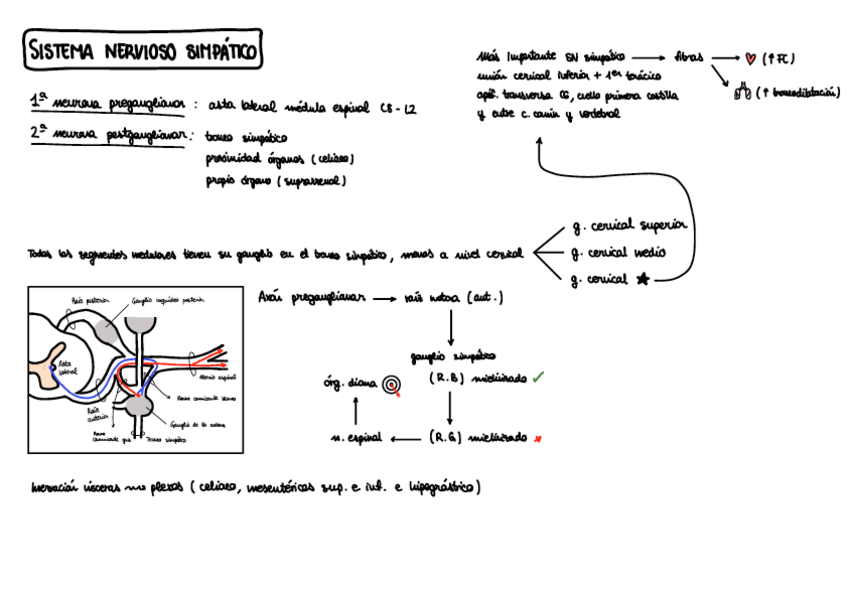 SISTEMA NERVIOSO SIMPÁTICO
1ª neurona preganglionar : asta lateral médula espinal C8 - L2
2ª neurona postganglionar : tronco simpático
proximidad órganos (celiaco)
propio órgano (suprarrenal)
Más importante SN simpático → fibras → (↑ FC)
(↑ broncodilatación)
unión cervical inferior + 1er torácico
apóf. transversa C6, cuello primera costilla
y entre c. común y vertebral
Todos los segmentos medulares tienen su ganglio en el tronco simpático, menos a nivel cervical
g. cervical superior
g. cervical medio
g. cervical ★
Raíz posterior
Ganglio raquídeo posterior
Asta
lateral
Nervio espinal
Ramo comunicante blanco
Raíz
anterior
Ganglio de la cadena
Ramo
comunicante gris
Tronco simpático
Axón preganglionar → raíz motora (ant.)
ganglio simpático
(R.B) mielinizado ✓
órg. diana
n. espinal ← (R.G) mielinizado ×
Inervación vísceras → plexos (celiaco, mesentéricos sup. e inf. e hipogástrico)